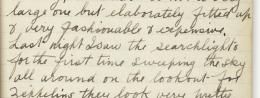 large one but elaborately fitted up
& very fashionable & expensive.
Last night I saw the searchlights
for the first time sweeping the sky
all around on the lookout for
Zeppelins they look very pretty